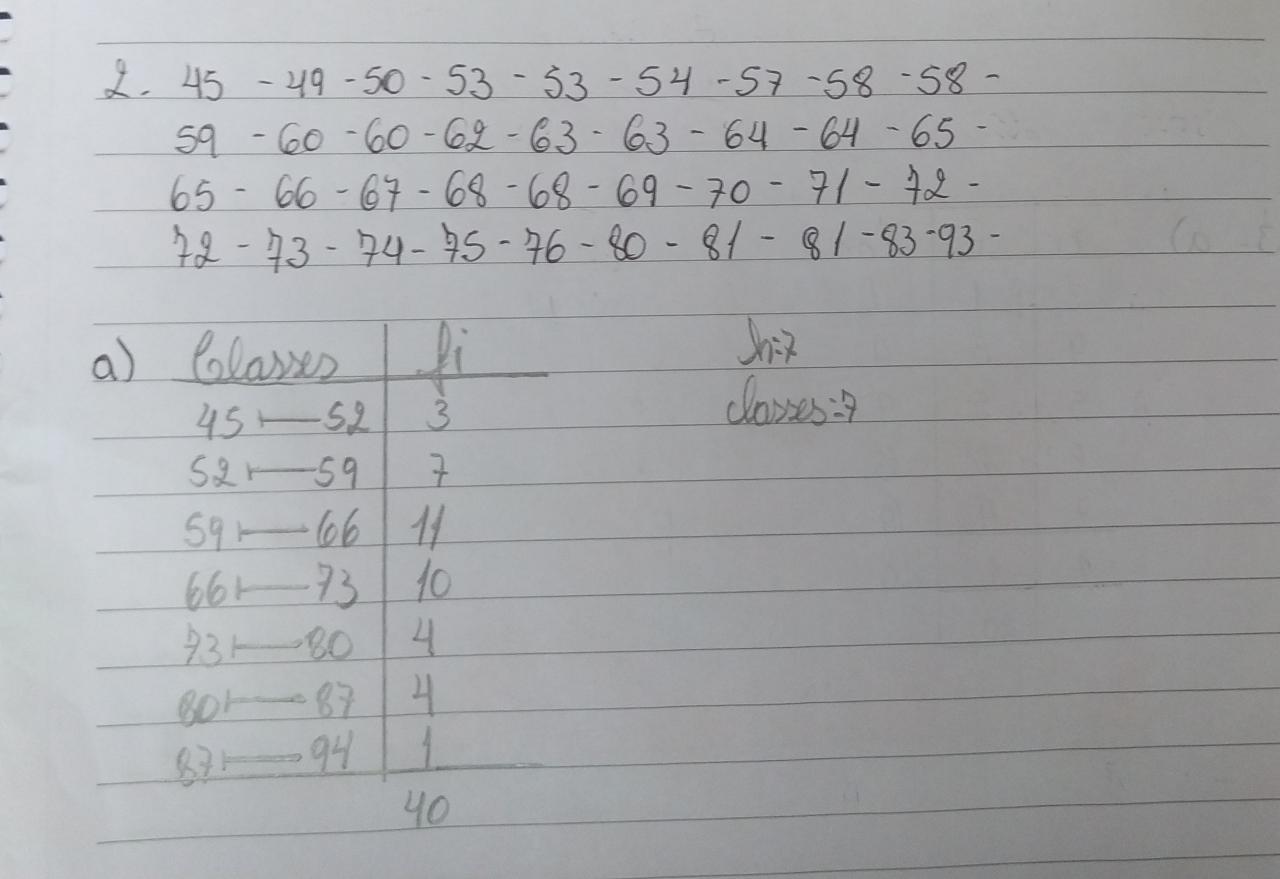 2. 45 - 49 - 50 - 53 - 53 - 54 - 57 - 58 - 58 -
59 - 60 - 60 - 62 - 63 - 63 - 64 - 64 - 65 -
65 - 66 - 67 - 68 - 68 - 69 - 70 - 71 - 72 -
72 - 73 - 74 - 75 - 76 - 80 - 81 - 81 - 83 - 93 -
a) Classes | fi h=7
45 ⊢ 52 | 3 classes=7
52 ⊢ 59 | 7
59 ⊢ 66 | 11
66 ⊢ 73 | 10
73 ⊢ 80 | 4
80 ⊢ 87 | 4
87 ⊢ 94 | 1
40